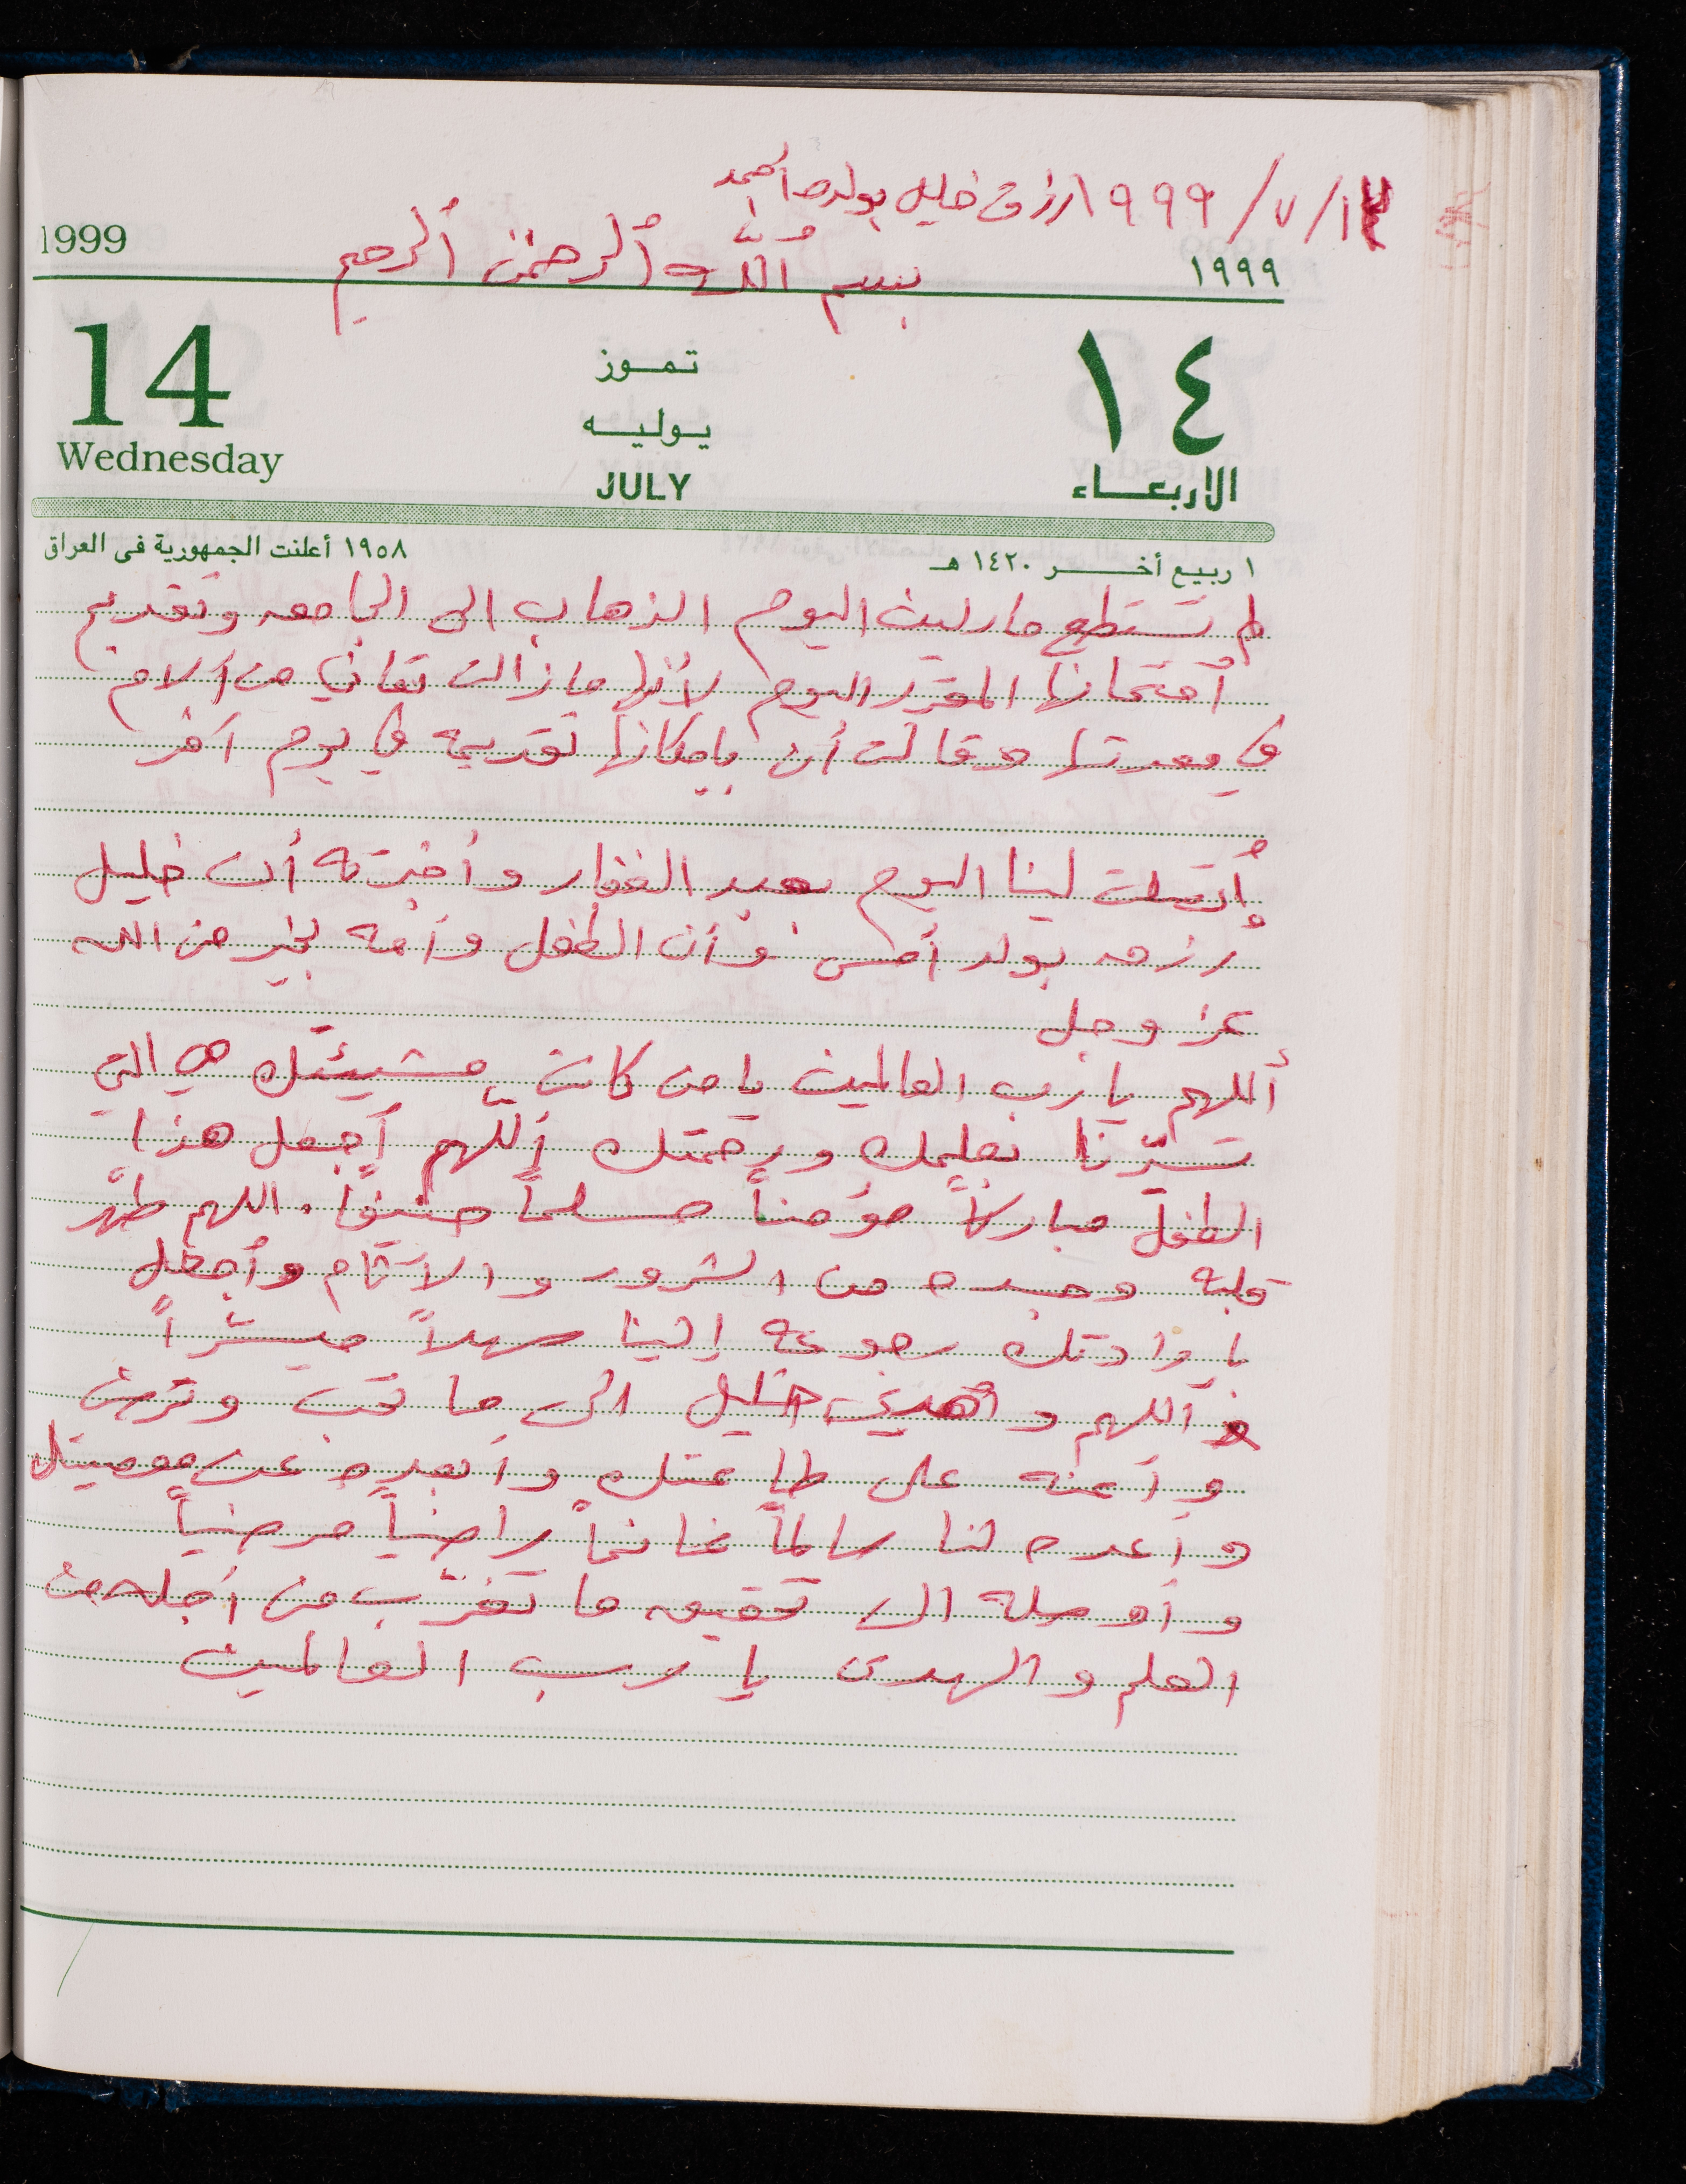 ١٣/٧/١٩٩٩ رزق خليل بولده أحمد
بسم اللّه ألرحمن ألرحيم
1999
١٩٩٩
14
تمـوز
١٤
يـوليـه
Wednesday
JULY
الاربعـاء
١ ربيع أخـر ١٤٢٠ هـ
١٩٥٨ أعلنت الجمهورية فى العراق
لم تستطع مارلين اليوم الذهاب الى الجامعه وتقديم
أمتحانها المقرر اليوم لأنها مازالت تعاني من آلام
في معدتها وقالت أن بإمكانها تقديمه في يوم آخر
إتصلت لينا اليوم بعبد الغفار وأخبرته أن خليل
رزق بولد أمس وأن الطفل وأمه بخير من الله
عز وجل
أللهم يا رب العالمين يا من كانت مشيئتك هي التي
تسيّرنا بعلمك ورحمتك أللّهم أجعل هذا
الطفل مباركاً مؤمناً مسلماً حنيفاً. اللهم طهّر
قلبه وجسده من الشرور والآثام وأجعل
بإرادتك رجوعه إلينا سهلاً ميسّراً
أللهم وأهدي خليل الى ما تحب وترضى
وأعنه على طاعتك وأبعده عن معصيتك
وأعده لنا سالماً غانماً راضياً مرضياً
وأوصله الى تحقيق ما تغرّب من أجله من
العلم والهدى يا رب العالمين